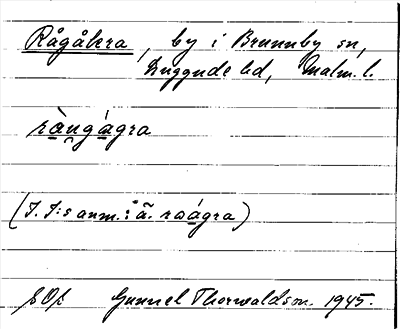 Rågåkra, by i Brunnby sn,
Luggude hd, Malm. l.
ràngágra
(I. I:s anm.: ä. roágra)
Gunnel Thorwaldson. 1945.